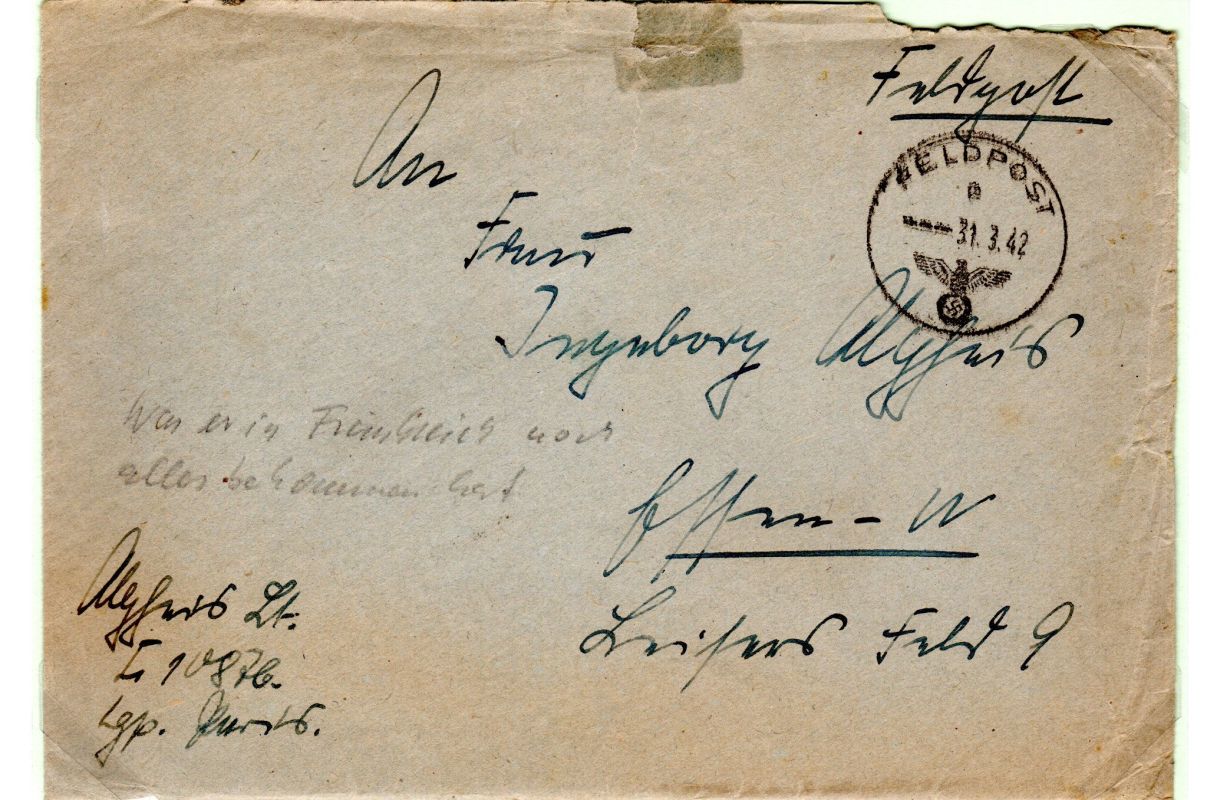 Feldpost
FELDPOST
a
31.3.42
An
Frau
Ingeborg Alpheis
Was er in Frankreich noch
alles bekommen hat
Essen-W
Leisers Feld 9
Alpheis Lt.
L 10876.
Lgp. Paris.